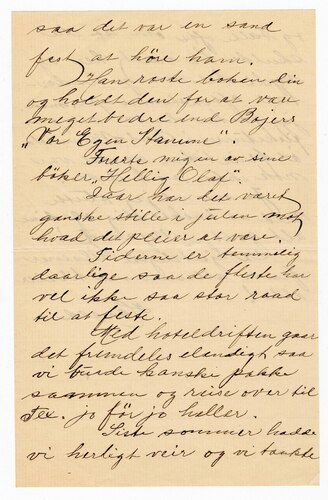 saa det var en sand
fest at höre ham.
Han roste boken din
og holdt den for at vær
meget bedre end Bojers
„Vor Egen Stamme".
Forærte mig en av sine
böker „Hellig Olaf".
I aar har det været
ganske stille i julen mot
hvad det pleier at være.
Tiderne er temmelig
daarlige saa de fleste har
vel ikke saa stor raad
til at feste.
Med hoteldriften gaar
det fremdeles elendigt saa
vi burde kanske pakke
sammen og reise over til
Tex. jo för jo haller.
Siste sommer hadde
vi herligt veir og vi tænkte